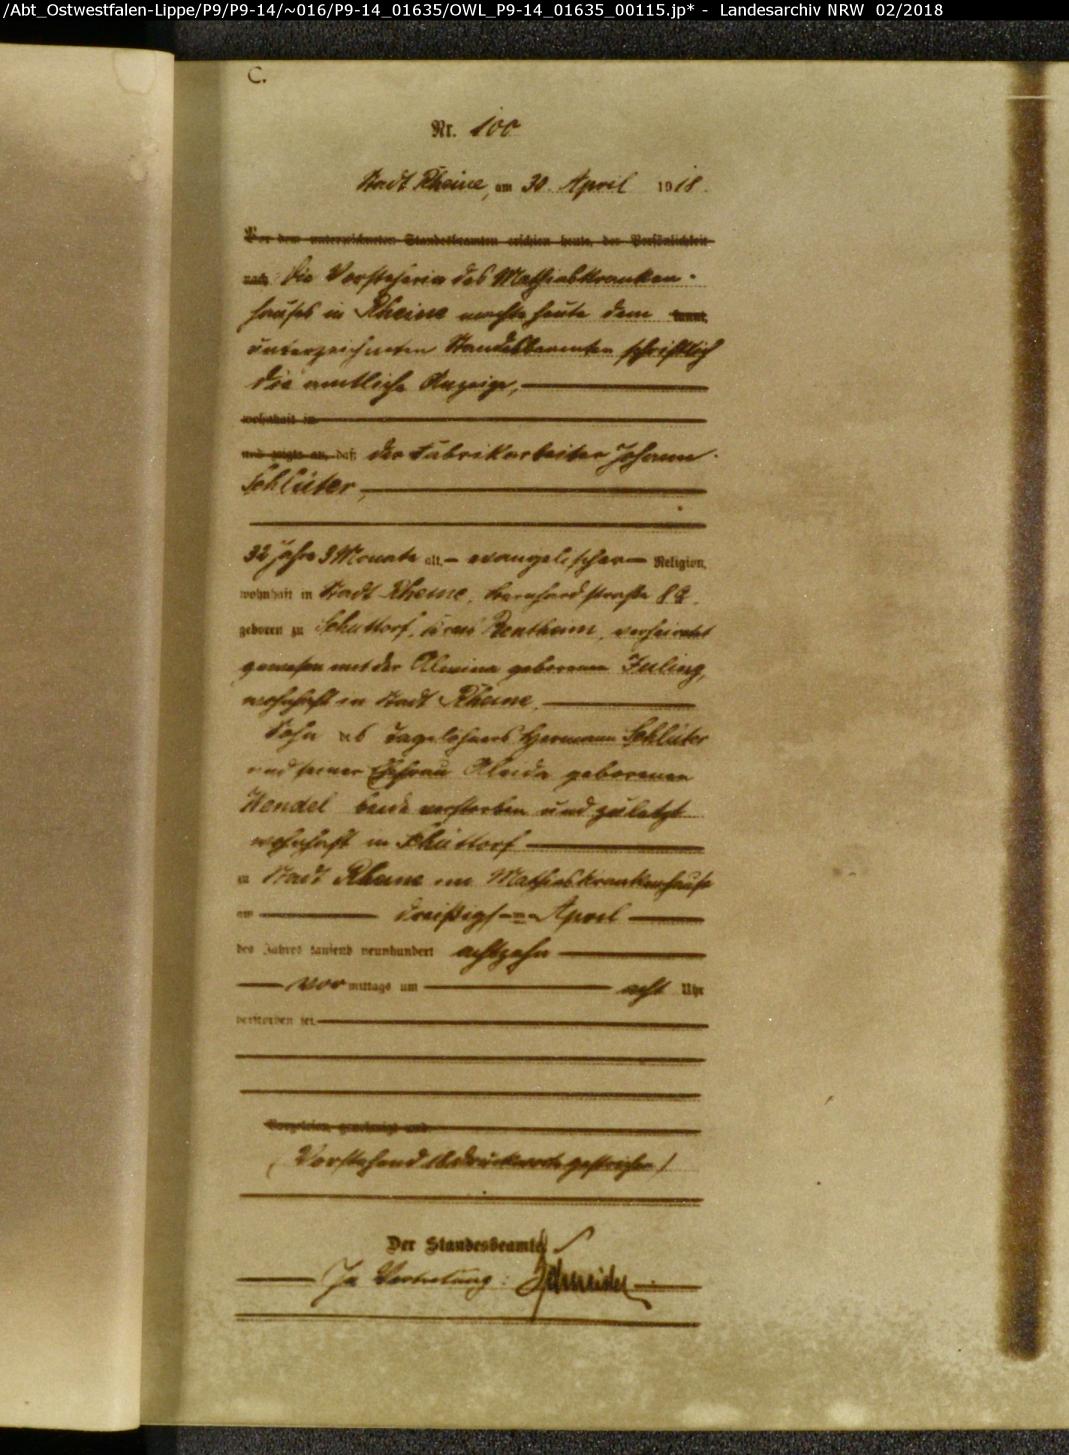 /Abt_Ostwestfalen-Lippe/P9/P9-14/~016/P9-14_01635/OWL_P9-14_01635_00115.jp* - Landesarchiv NRW 02/2018
C.
Nr. 100
Stadt Rheine, am 30. April 1918.
Vor dem unterzeichneten Standesbeamten erschien heute, der Persönlichkeit
nach die Vorsteherin des Mathiaskranken-
hauses in Rheine machte heute dem
unterzeichneten Standesbeamten schriftlich
die amtliche Anzeige,
wohnhaft in
und zeigte an, daß der Fabrikarbeiter Johann
Schlüter,
32 Jahre 3 Monate alt, evangelischer Religion,
wohnhaft in Stadt Rheine, Bernhardstraße 82.
geboren zu Schüttorf, Kreis Bentheim, verheiratet
gewesen mit der Alwina geborenen Füling,
wohnhaft in Stadt Rheine.
Sohn des Tagelöhners Hermann Schlüter
und seiner Ehefrau Aleida geborenen
Hendel beide verstorben und zuletzt
wohnhaft in Schüttorf
zu Stadt Rheine im Mathiaskrankenhause
am dreißigsten April
des Jahres tausend neunhundert achtzehn
vor mittags um acht Uhr
verstorben sei.
Vorgelesen, genehmigt und
(Vorstehend 18 Druckworte gestrichen)
Der Standesbeamte
In Vertretung: Schneider